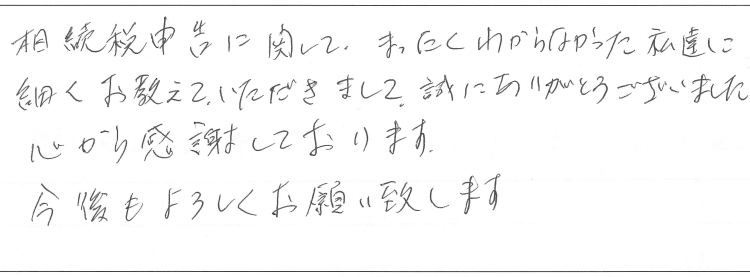 相続税申告に関して、まったくわからなかった私達に
細くお教えて、いただきまして、誠にありがとうございました
心から感謝しております。
今後もよろしくお願い致します